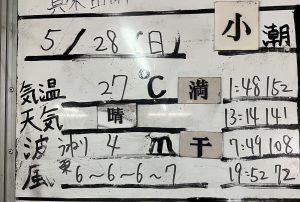 5/28(日) 小潮
気温 27℃ 満 1:48 152
天気 晴 13:14 141
波 うねり 4m 干 7:49 108
風 6〜6〜6〜7 19:52 72